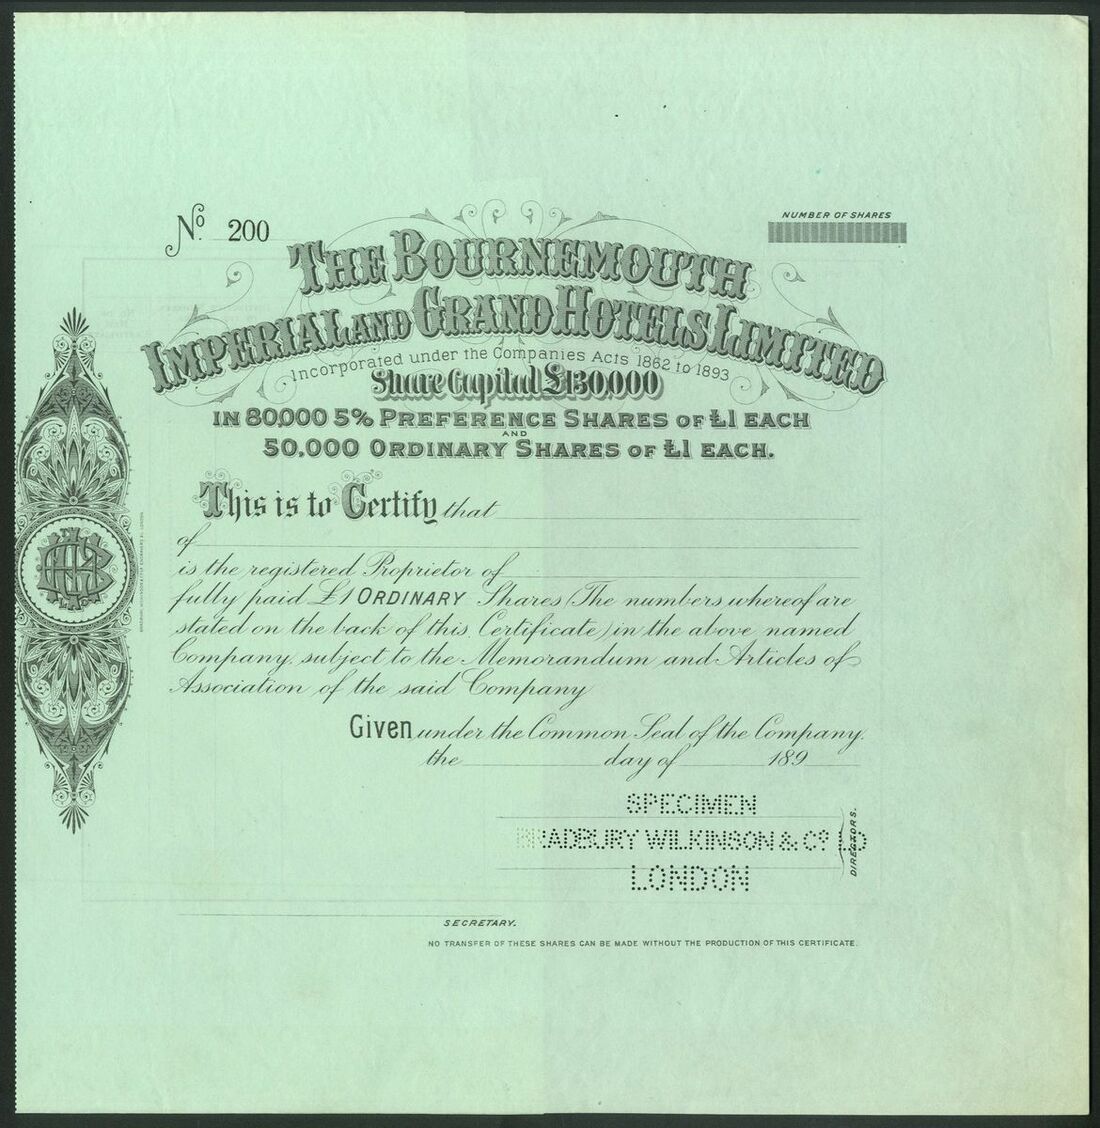 No. 200
NUMBER OF SHARES
THE BOURNEMOUTH
IMPERIAL AND GRAND HOTELS LIMITED
Incorporated under the Companies Acts 1862 to 1893
Share Capital £130,000
IN 80,000 5% PREFERENCE SHARES OF £1 EACH
AND
50,000 ORDINARY SHARES OF £1 EACH.
This is to Certify that
of
is the registered Proprietor of
fully paid £1 ORDINARY Shares (The numbers whereof are
stated on the back of this Certificate) in the above named
Company, subject to the Memorandum and Articles of
Association of the said Company
Given under the Common Seal of the Company.
the day of 189
SPECIMEN
BRADBURY WILKINSON & Co. LD
LONDON
DIRECTORS.
SECRETARY.
NO TRANSFER OF THESE SHARES CAN BE MADE WITHOUT THE PRODUCTION OF THIS CERTIFICATE.